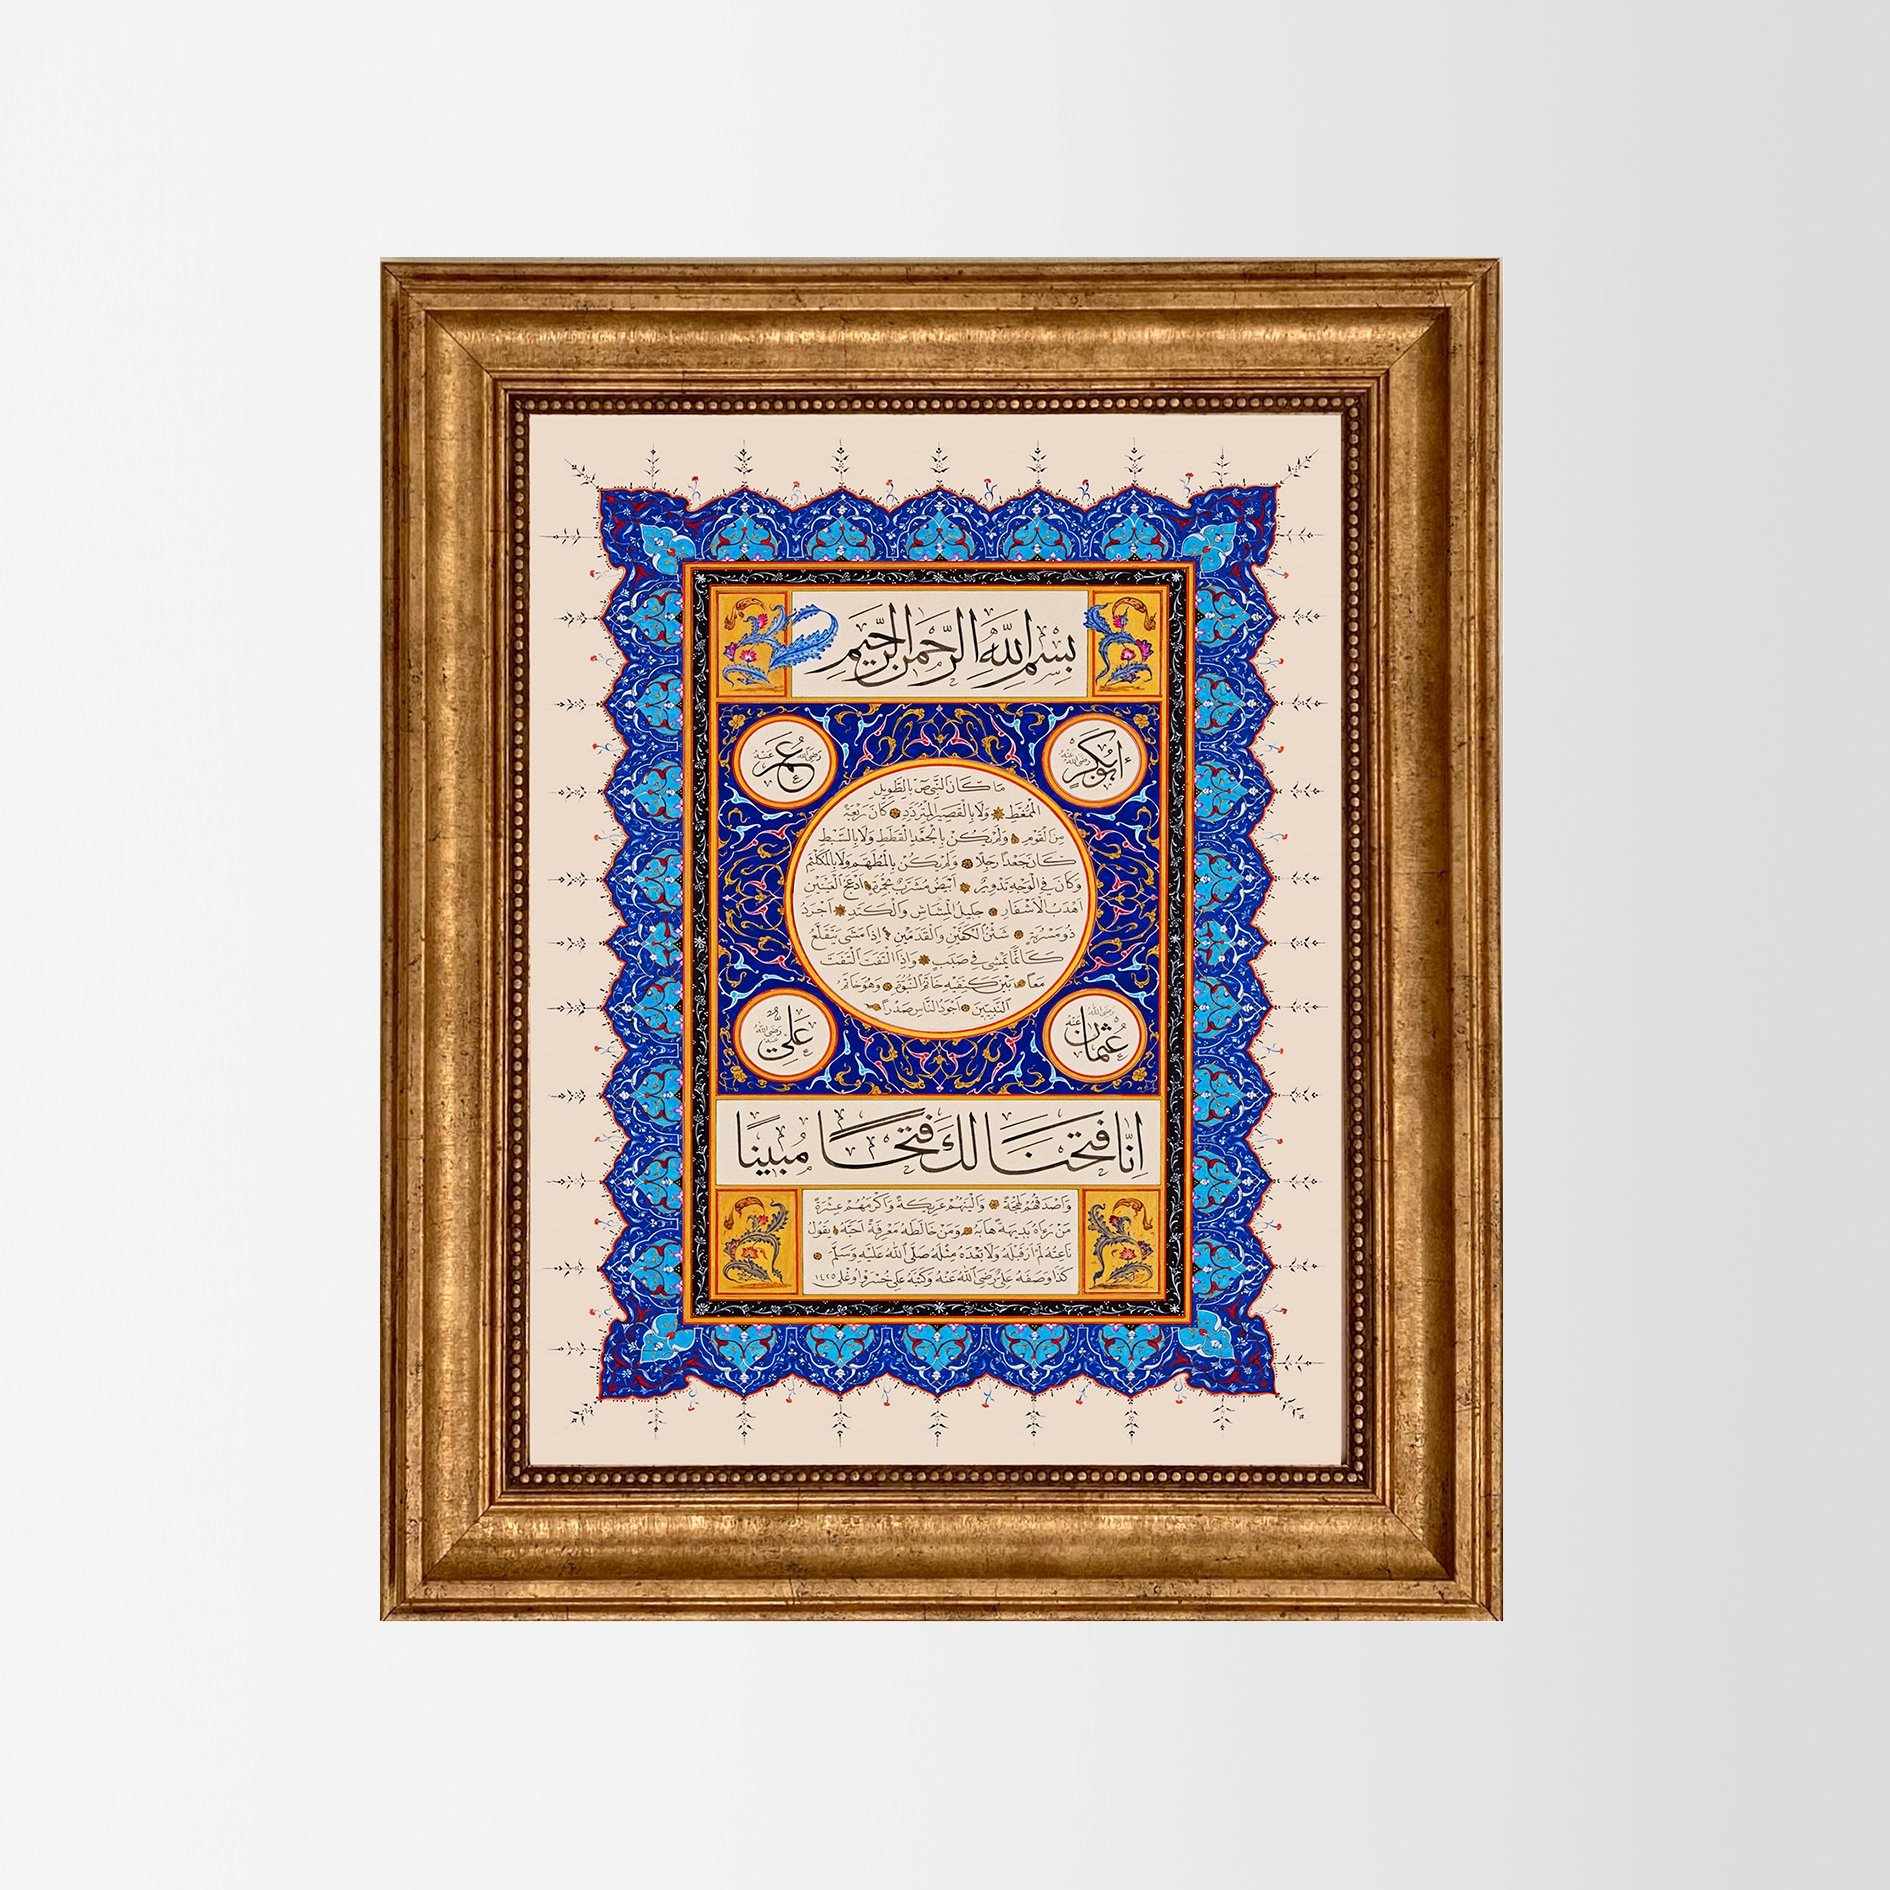 بِسْمِ اللَّهِ الرَّحْمنِ الرَّحِيمِ
أَبُوبَكْر رَضِيَ اللهُ عَنْهُ
عُمَر رَضِيَ اللهُ عَنْهُ
مَا كَانَ النَّبِيُّ ص بِالطَّوِيلِ
الْمُمَّغِطِ وَلَا بِالْقَصِيرِ الْمُتَرَدِّدِ كَانَ رَبْعَةً
مِنَ الْقَوْمِ وَلَمْ يَكُنْ بِالْجَعْدِ الْقَطَطِ وَلَا بِالسَّبْطِ
كَانَ جَعْدًا رَجِلًا وَلَمْ يَكُنْ بِالْمُطَهَّمِ وَلَا بِالْمُكَلْثَمِ
وَكَانَ فِي الْوَجْهِ تَدْوِيرٌ أَبْيَضُ مُشْرَبٌ بِحُمْرَةٍ أَدْعَجُ الْعَيْنَيْنِ
أَهْدَبُ الْأَشْفَارِ جَلِيلُ الْمُشَاشِ وَالْكَتَدِ أَجْرَدُ
ذُو مَسْرُبَةٍ شَثْنُ الْكَفَّيْنِ وَالْقَدَمَيْنِ إِذَا مَشَى يَتَقَلَّعُ
كَأَنَّمَا يَمْشِي فِي صَبَبٍ وَإِذَا الْتَفَتَ الْتَفَتَ
مَعًا بَيْنَ كَتِفَيْهِ خَاتَمُ النُّبُوَّةِ وَهُوَ خَاتَمُ
النَّبِيِّينَ أَجْوَدُ النَّاسِ صَدْرًا
عُثْمَان رَضِيَ اللهُ عَنْهُ
عَلِيّ رَضِيَ اللهُ عَنْهُ
اِنَّا فَتَحْنَا لَكَ فَتْحًا مُبِينًا
وَأَصْدَقُهُمْ لَهْجَةً وَأَلْيَنُهُمْ عَرِيكَةً وَأَكْرَمُهُمْ عِشْرَةً
مَنْ رَءَاهُ بَدِيهَةً هَابَهُ وَمَنْ خَالَطَهُ مَعْرِفَةً أَحَبَّهُ يَقُولُ
نَاعِتُهُ لَمْ أَرَ قَبْلَهُ وَلَا بَعْدَهُ مِثْلَهُ صَلَّى اللهُ عَلَيْهِ وَسَلَّمَ
كَذَا وَصَفَهُ عَلِيٌّ رَضِيَ اللهُ عَنْهُ وَكَتَبَهُ عَلِي خُسْرَوْأُوغْلِي ١٤٢٥